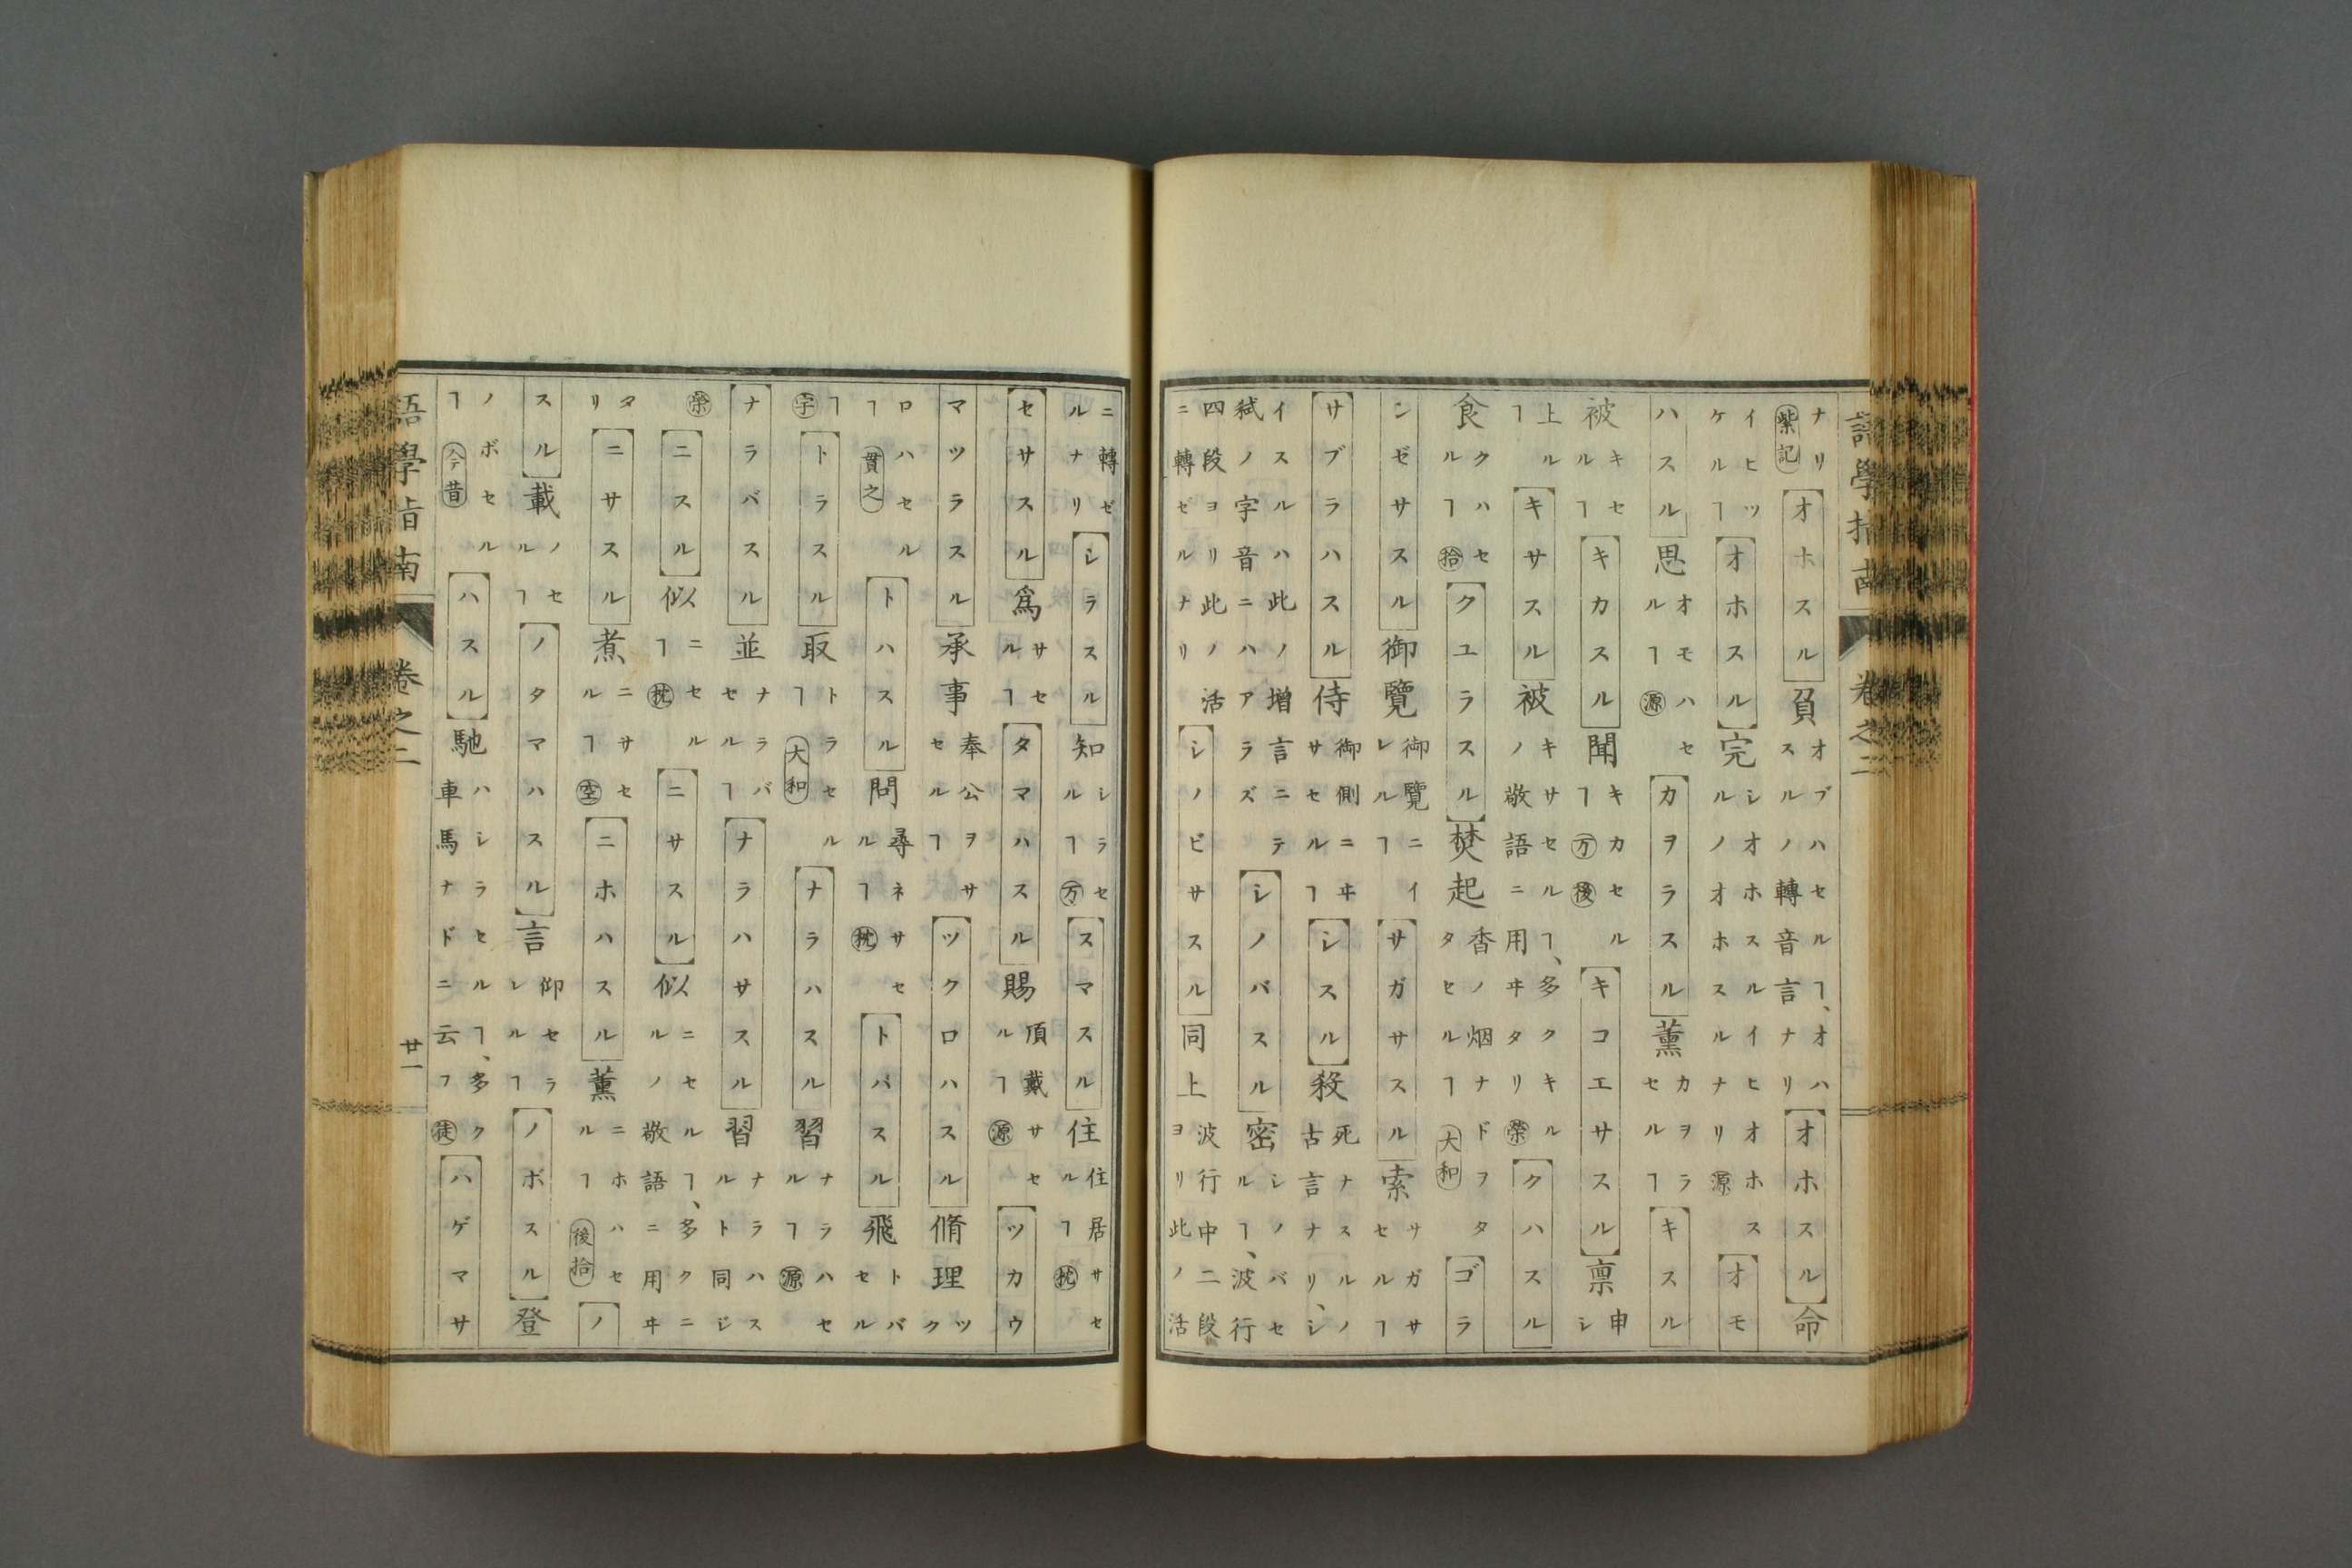 語學指南　卷之二
ナリ(紫記)[オホスル]負オブハセルヿ、オハスルノ轉音言ナリ[オホスル]命
イヒツケルヿ[オホスル]完シオホスルイヒオホスルノオホスルナリ(源)[オモ
ハスル]思オモハセルヿ(源)[カヲラスル]薫カヲラセルヿ[キスル
被キセルヿ[キカスル]聞キカセルヿ(万)(後)[キコエサスル]禀申シ
上ルヿ[キサスル]被キサセルヿ、多クキルノ敬語ニ用ヰタリ(榮)[クハスル
食クハセルヿ(拾)[クユラスル]焚起香ノ烟ナドヲタタセルヿ(大和)[ゴラ
ンゼサスル]御覽御覽ニイレルヿ[サガサスル]索サガサセルヿ
[サブラハスル]侍御側ニヰサセルヿ[シスル]殺死ナスルノ古言ナリ、シ
イスルハ此ノ増言ニテ弑ノ字音ニハアラズ[シノバスル]密シノバセルヿ、波行
四段ヨリ此ノ活ニ轉ゼルナリ[シノビサスル]同上波行中二段ヨリ此ノ活
ニ轉ゼルナリ[シラスル]知シラセルヿ(万)[スマスル]住住居サセルヿ(枕)
[セサスル]爲サセルヿ[タマハスル]賜頂戴サセルヿ(源)[ツカウ
マツラスル]承事奉公ヲサセルヿ[ツクロハスル]脩理ツク
ロハセルヿ(貫之)[トハスル]問尋ネサセルヿ(枕)[トバスル]飛トバセル
ヿ(字)[トラスル]取トラセルヿ(大和)[ナラハスル]習ナラハセルヿ(源)
[ナラバスル]並ナラバセルヿ[ナラハサスル]習ナラハスルト同ジ
(榮)[ニスル]似ニセルヿ(枕)[ニサスル]似ニセルヿ、多クニルノ敬語ニ用ヰ
タリ[ニサスル]煮ニサセルヿ(空)[ニホハスル]薫ニホハセルヿ(後拾)[ノ
スル]載ノセルヿ[ノタマハスル]言仰セラレルヿ[ノボスル]登
ノボセルヿ(今昔)[ハスル]馳ハシラセルヿ、多ク車馬ナドニ云フ(徒)[ハゲマサ
語學指南　卷之二　廿一